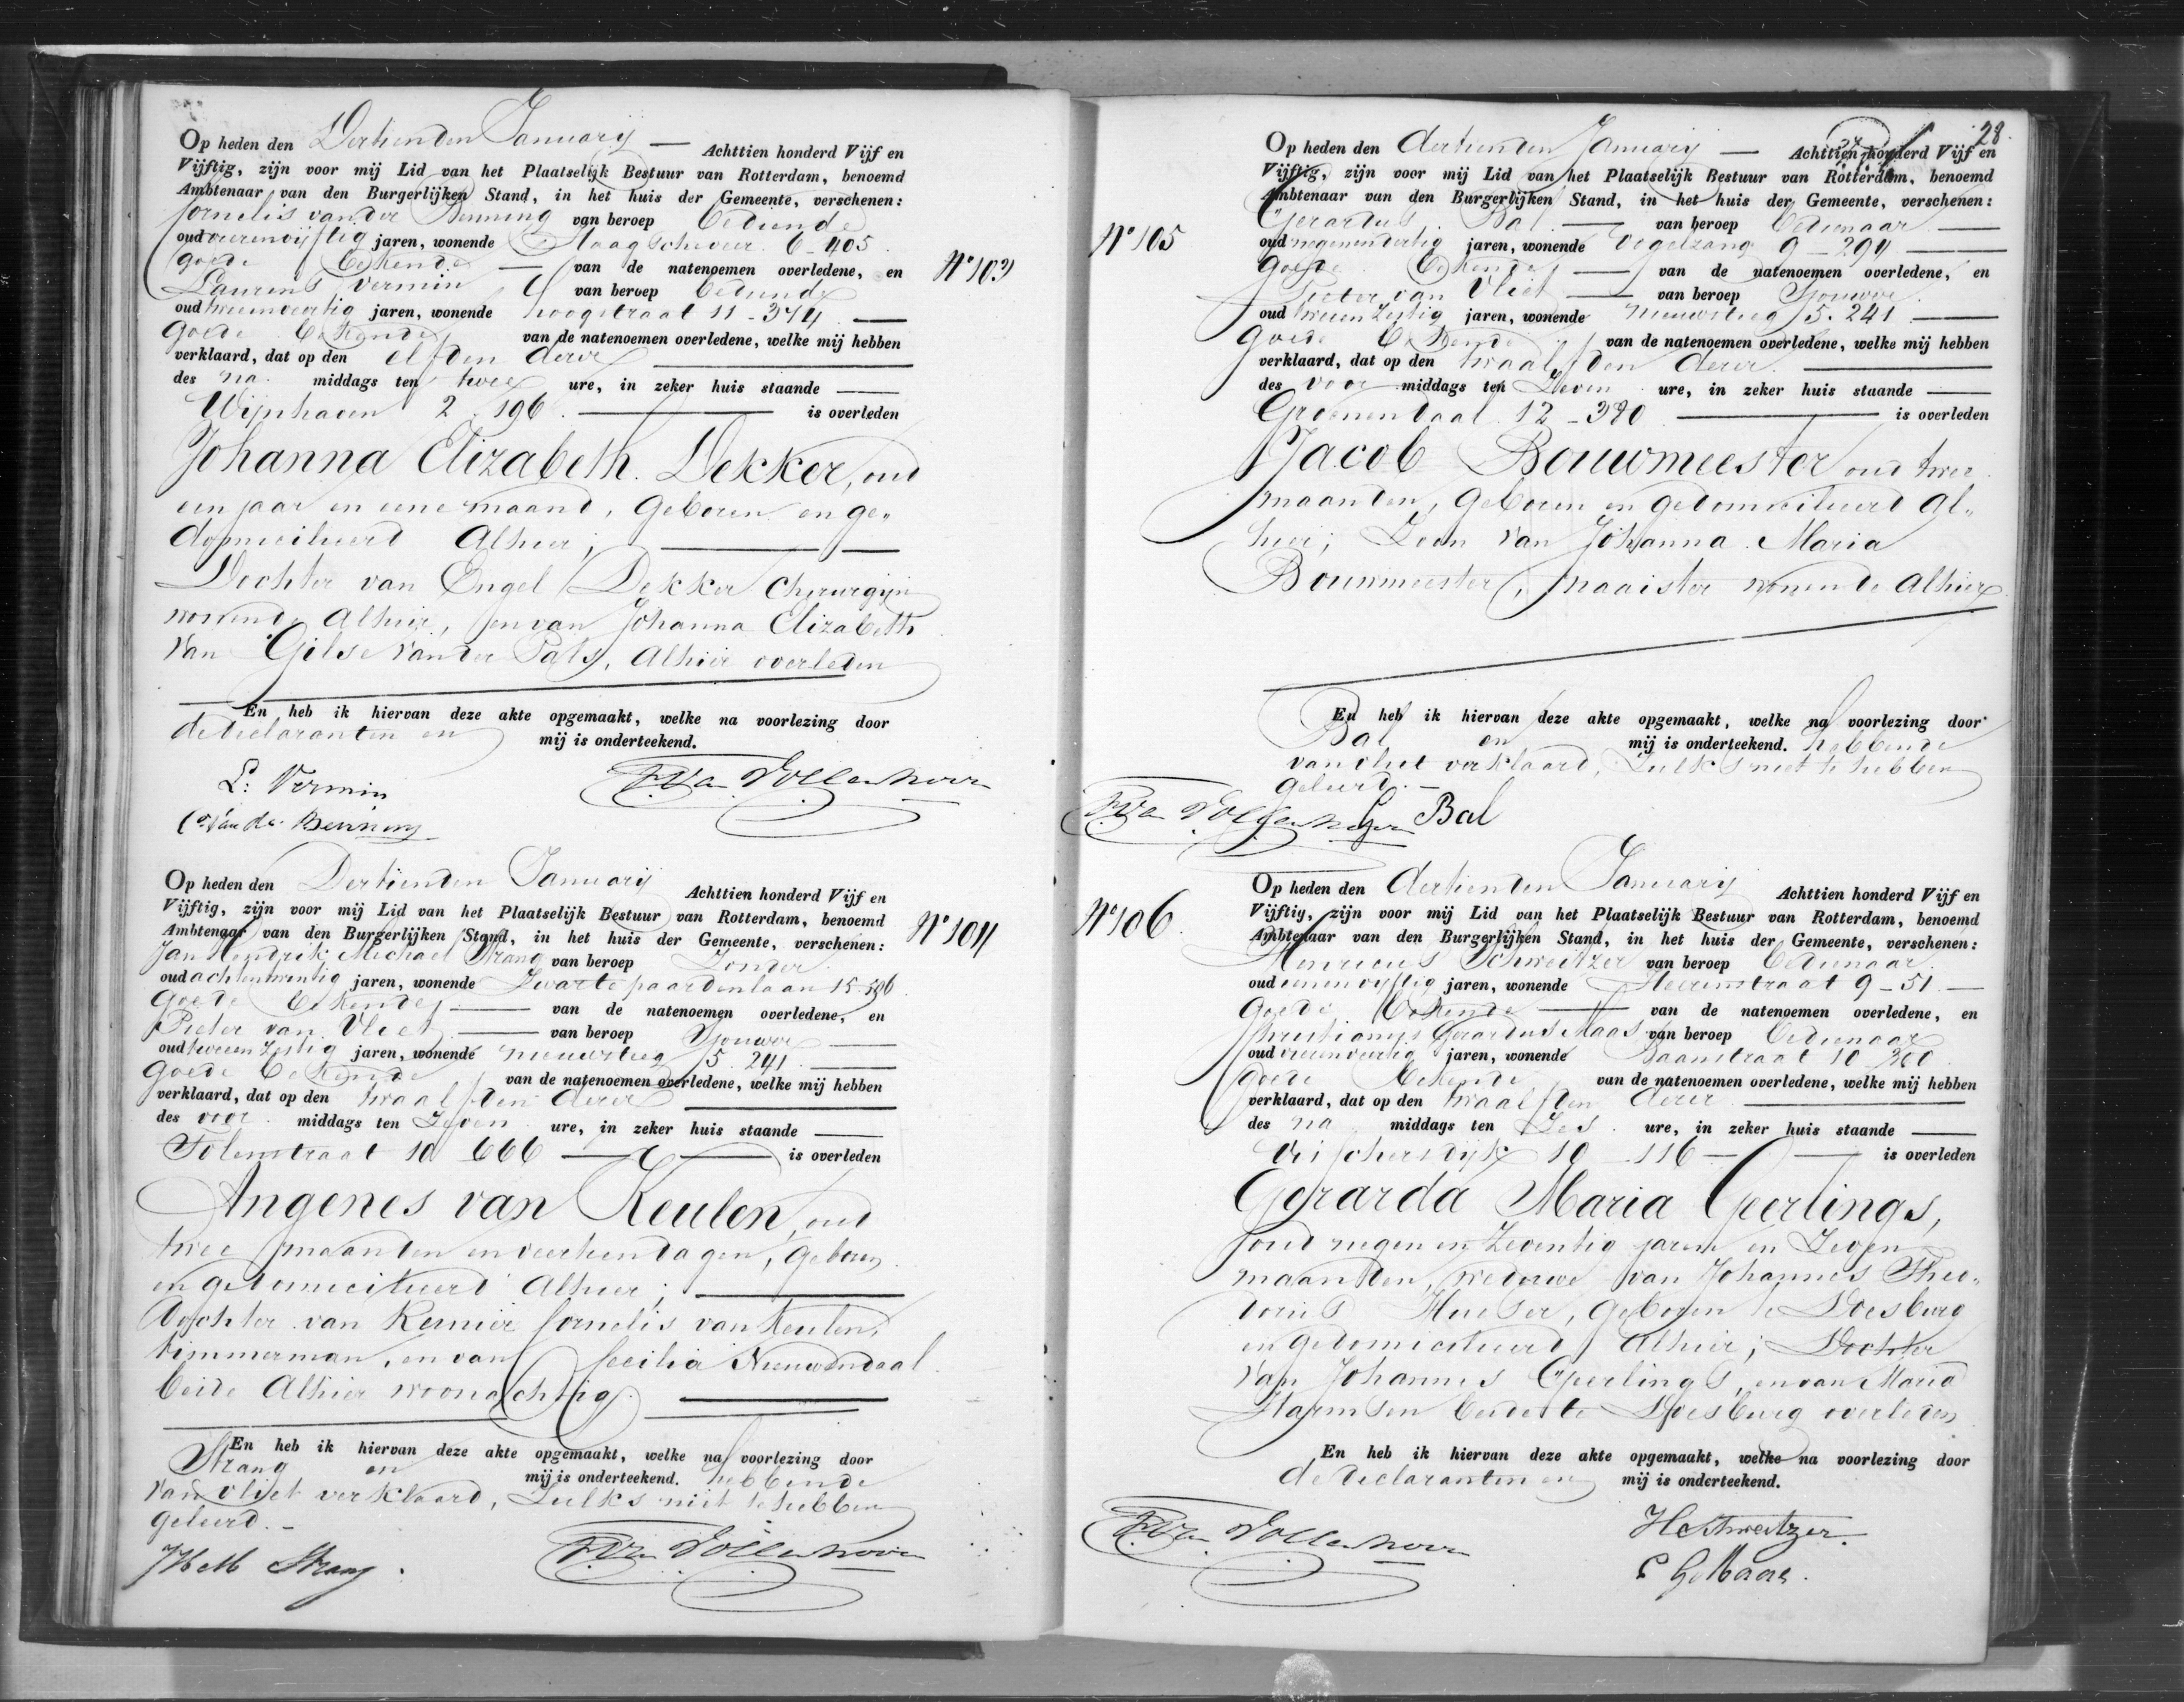 Op heden den Dertienden Januarij — Achttien honderd Vijf en
Vijftig, zijn voor mij Lid van het Plaatselijk Bestuur van Rotterdam, benoemd
Ambtenaar van den Burgerlijken Stand, in het huis der Gemeente, verschenen:
Cornelis van der Benning van beroep bediende
oud vierenvijftig jaren, wonende Slaag 6 - 405
goede bekende — van de natenoemen overledene, en
Laurens Vermin van beroep bediende
oud tweenveertig jaren, wonende hoogstraat 11 - 374 —
goede bekende van de natenoemen overledene, welke mij hebben
verklaard, dat op den elfden dezer
des na middags ten twee ure, in zeker huis staande —
Wijnhaven 2 . 196 . — is overleden
Johanna Elizabeth Dekker, oud
een jaar en eene maand, geboren en ge„
domicilieerd Alhier; —
Dochter van Engel Dekker chirurgijn
wonende Alhier, en van Johanna Elizabeth
van Gilse van der Pals, Alhier overleden
En heb ik hiervan deze akte opgemaakt, welke na voorlezing door
de declaranten en mij is onderteekend.
L: Vermin
Cs. van der Benning
No 103
Op heden den Dertienden Januarij Achttien honderd Vijf en
Vijftig, zijn voor mij Lid van het Plaatselijk Bestuur van Rotterdam, benoemd
Ambtenaar van den Burgerlijken Stand, in het huis der Gemeente, verschenen:
Jan Hendrik Michael Strang van beroep Zonder
oud achtentwintig jaren, wonende Zwarte paardenlaan 15 - 596
goede bekende — van de natenoemen overledene, en
Pieter van Vliet — van beroep Sjouwer
oud tweeen Zestig jaren, wonende nieuwsteeg 5 . 241 . —
goede bekende van de natenoemen overledene, welke mij hebben
verklaard, dat op den twaalfden dezer
des voor middags ten Zeven ure, in zeker huis staande —
Folenstraat 10 666 — is overleden
Angenes van Keulen, oud
twee maanden en veertien dagen, geboren
en gedomicilieerd Alhier; —
dochter van Reinier Cornelis van Keulen,
timmerman, en van Cecilia Nieuwendaal
beide Alhier woonachtig. —
En heb ik hiervan deze akte opgemaakt, welke na voorlezing door
Strang en mij is onderteekend. hebbende
van vliet verklaard, Zulks niet te hebben
geleerd. -
JHM Strang .
No 104
28.
No 105
Op heden den dertienden Januarij — Achttien honderd Vijf en
Vijftig, zijn voor mij Lid van het Plaatselijk Bestuur van Rotterdam, benoemd
Ambtenaar van den Burgerlijken Stand, in het huis der Gemeente, verschenen:
Gerardus Bal — van beroep bedienaar —
oud negenendertig jaren, wonende Vogelzang 9 - 294 —
goede bekende — van de natenoemen overledene, en
Pieter van Vliet — van beroep Sjouwer
oud tweeen Zestig jaren, wonende nieuwsteeg 5 . 241 —
goede bekende van de natenoemen overledene, welke mij hebben
verklaard, dat op den twaalfden dezer —
des voor middags ten Zeven ure, in zeker huis staande —
Groenendaal 12 - 390 — is overleden
Jacob Bouwmeester oud twee
maanden, geboren en gedomicilieerd Al„
hier; Zoon van Johanna Maria
Bouwmeester, naaister wonende Alhier
En heb ik hiervan deze akte opgemaakt, welke na voorlezing door
Bal en mij is onderteekend. hebbende
van vliet verklaard, Zulks niet te hebben
geleerd. -
G Bal
No 106
Op heden den dertienden Januarij Achttien honderd Vijf en
Vijftig, zijn voor mij Lid van het Plaatselijk Bestuur van Rotterdam, benoemd
Ambtenaar van den Burgerlijken Stand, in het huis der Gemeente, verschenen:
Henricus Schweitzer van beroep bedienaar
oud eenenvijftig jaren, wonende Heerenstraat 9 - 51 . —
goede bekende — van de natenoemen overledene, en
Christianus Gerardus Maas van beroep bedienaar
oud vierenveertig jaren, wonende Baanstraat 10 360
goede bekende van de natenoemen overledene, welke mij hebben
verklaard, dat op den twaalfden dezer —
des na middags ten Zes . ure, in zeker huis staande —
Visschersdijk 10 - 116 — is overleden
Gerarda Maria Geerlings,
oud negen en Zeventig jaren en Zeven
maanden, weduwe van Johannes Theo„
dorus Hueser, geboren te Doesburg
en gedomicilieerd Alhier; Dochter
van Johannes Geerlings, en van Maria
Harmsen beide te Doesburg overleden
En heb ik hiervan deze akte opgemaakt, welke na voorlezing door
de declaranten en mij is onderteekend.
H Schweitzer.
C G Maas.